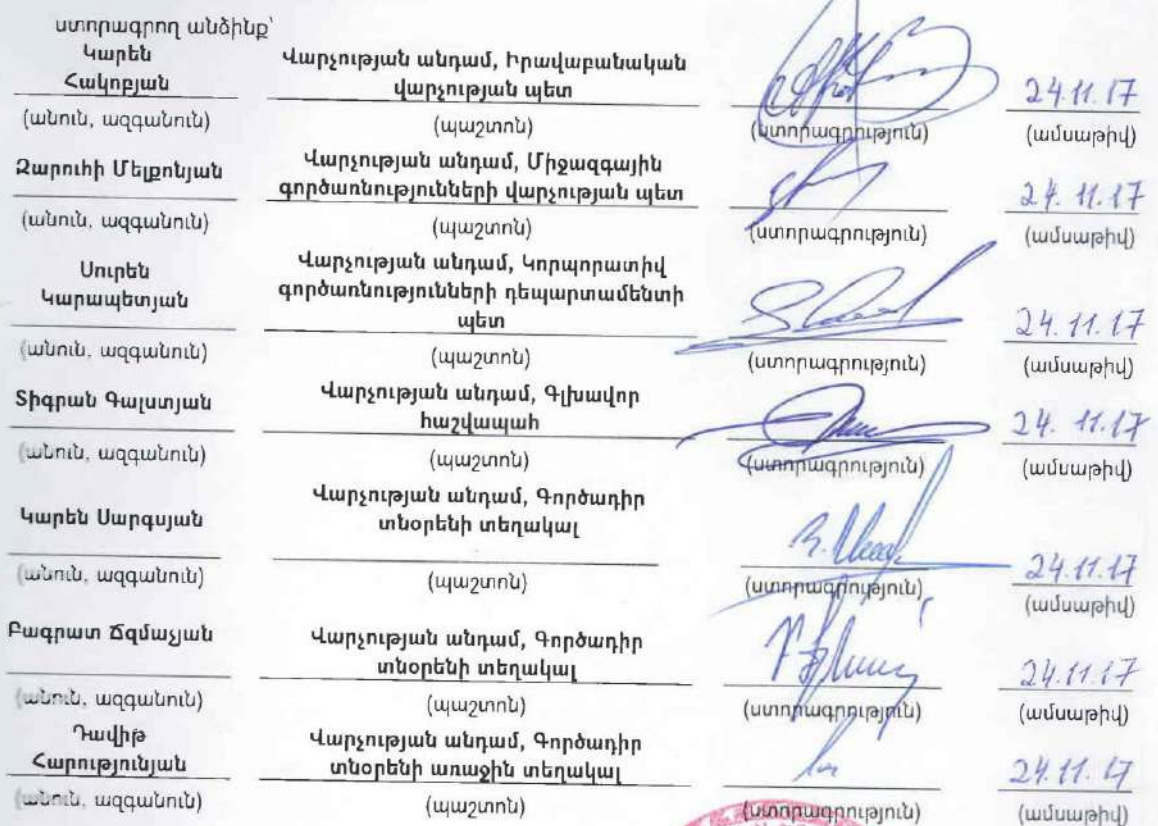 ստորագրող անձինք՝
Կարեն
Հակոբյան
Վարչության անդամ, Իրավաբանական
վարչության պետ
24.11.17
(անուն, ազգանուն) (պաշտոն) (ստորագրություն) (ամսաթիվ)
Զարուհի Մելքոնյան
Վարչության անդամ, Միջազգային
գործառնությունների վարչության պետ
24.11.17
(անուն, ազգանուն) (պաշտոն) (ստորագրություն) (ամսաթիվ)
Սուրեն
Կարապետյան
Վարչության անդամ, Կորպորատիվ
գործառնությունների դեպարտամենտի
պետ
24.11.17
(անուն, ազգանուն) (պաշտոն) (ստորագրություն) (ամսաթիվ)
Տիգրան Գալստյան
Վարչության անդամ, Գլխավոր
հաշվապահ
24.11.17
(անուն, ազգանուն) (պաշտոն) (ստորագրություն) (ամսաթիվ)
Կարեն Սարգսյան
Վարչության անդամ, Գործադիր
տնօրենի տեղակալ
24.11.17
(անուն, ազգանուն) (պաշտոն) (ստորագրություն) (ամսաթիվ)
Բագրատ Ճզմաչյան
Վարչության անդամ, Գործադիր
տնօրենի տեղակալ
24.11.17
(անուն, ազգանուն) (պաշտոն) (ստորագրություն) (ամսաթիվ)
Դավիթ
Հարությունյան
Վարչության անդամ, Գործադիր
տնօրենի առաջին տեղակալ
24.11.17
(անուն, ազգանուն) (պաշտոն) (ստորագրություն) (ամսաթիվ)